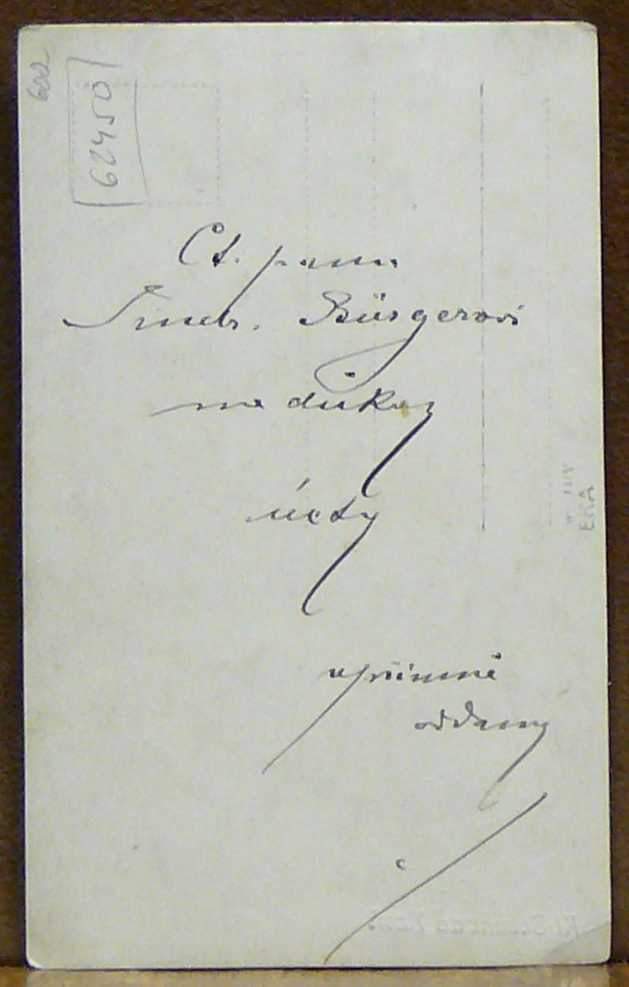 602
62450
Ct. panu
Jindr. Bürgerovi
na důkaz
úcty
upřímně
oddaný
ERA